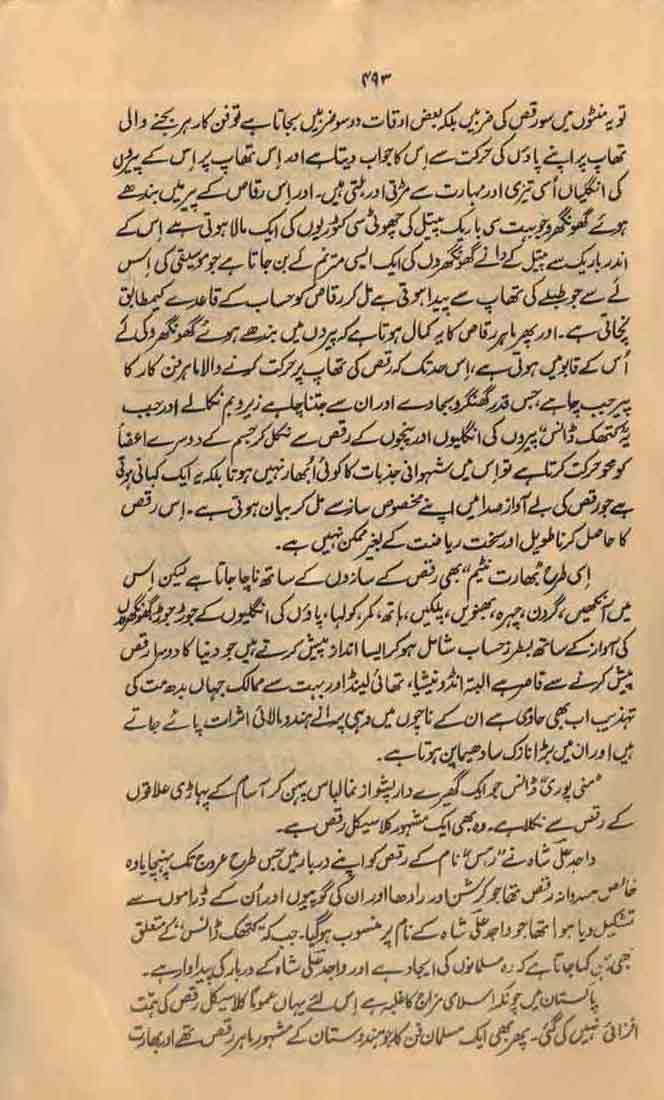 ۴۹۳
تو یہ منٹوں میں سو رقص کی ضربیں بلکہ بعض اوقات دو سو ضربیں بجاتا ہے تو فن کار ہر بجنے والی
تھاپ پر اپنے پاؤں کی حرکت سے اس کا جواب دیتا ہے اور اس تھاپ پر اس کے پیروں
کی انگلیاں اُسی تیزی اور مہارت سے مڑتی اور ہلتی ہیں۔ اور اس رقاص کے پیر میں بندھے
ہوئے گھونگھرو جو بہت سی باریک پیتل کی چھوٹی سی کٹوریوں کی ایک مالا ہوتی ہے اس کے
اندر باریک سے پیتل کے دانے گھونگھروں کی ایک ایسی مترنم لے بن جاتا ہے جو موسیقی کی اس
لے سے جو طبلے کی تھاپ سے پیدا ہوتی ہے مل کر رقاص کو حساب کے قاعدے کیمطابق
نچاتی ہے۔ اور پھر ماہر رقاص کا یہ کمال ہوتا ہے کہ پیروں میں بندھے ہوئے گھونگھرو کی لے
اُس کے قابو میں ہوتی ہے، اس حد تک کہ رقص کی تھاپ پر حرکت کرنے والا ماہر فن کار کا
پیر جب چاہے، جس قدر گھنگرو بجا دے اور ان سے جتنا چاہے زیر و بم نکالے اور جب
یہ "کتھک ڈانس" پیروں کی انگلیوں اور پنجوں کے رقص سے نکل کر جسم کے دوسرے اعضا
کو محو حرکت کرتا ہے تو اس میں شہوانی جذبات کا کوئی اُبھار نہیں ہوتا بلکہ یہ ایک کہانی ہوتی
ہے جو رقص کی بے آواز صدا میں اپنے مخصوص ساز سے مل کر بیان ہوتی ہے۔ اس رقص
کا حاصل کرنا طویل اور سخت ریاضت کے بغیر ممکن نہیں ہے۔
اسی طرح "بھارت نٹیم" بھی رقص کے سازوں کے ساتھ ناچا جاتا ہے لیکن اس
میں آنکھیں، گردن، چہرہ، بھنویں، پلکیں، ہاتھ، کمر، کولہا، پاؤں کی انگلیوں کے جوڑ جوڑ گھونگھروں
کی آواز کے ساتھ بطرز حساب شامل ہو کر ایسا انداز پیش کرتے ہیں جو دنیا کا دوسرا رقص
پیش کرنے سے قاصر ہے البتہ انڈونیشیا، تھائی لینڈ اور بہت سے ممالک جہاں بدھ مت کی
تہذیب اب بھی حاوی ہے ان کے ناچوں میں وہی پرانے ہندو مالائی اثرات پائے جاتے
ہیں اور ان میں بڑا نازک سا دھیما پن ہوتا ہے۔
"منی پوری" ڈانس جو ایک گھیرے دار پشواز نما لباس پہن کر آسام کے پہاڑی علاقوں
کے رقص سے نکلا ہے۔ وہ بھی ایک مشہور کلاسیکل رقص ہے۔
واجد علی شاہ نے "رہس" نام کے رقص کو اپنے دربار میں جس طرح عروج تک پہنچایا وہ
خالص ہندوانہ رقص تھا جو کرشن اور رادھا اور ان کی گوپیوں اور اُن کے ڈراموں سے
تشکیل دیا ہوا تھا جو واجد علی شاہ کے نام پر منسوب ہو گیا۔ جب کہ "کتھک ڈانس" کے متعلق
بھی کہا جاتا ہے کہ وہ مسلمانوں کی ایجاد ہے اور واجد علی شاہ کے دربار کی پیداوار ہے۔
پاکستان میں چونکہ اسلامی مزاج کا غلبہ ہے اس لئے یہاں عموماً کلاسیکل رقص کی ہمت
افزائی نہیں کی گئی۔ پھر بھی ایک مسلمان فن کار جو ہندوستان کے مشہور ماہر رقص تھے اور بھارت